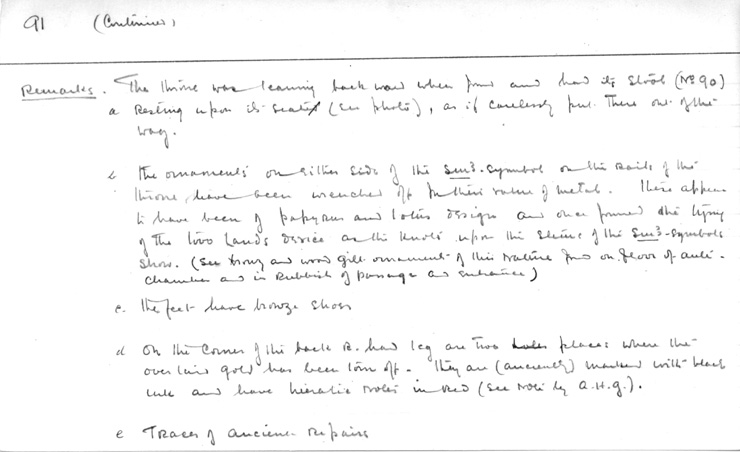 91 (Continued)
Remarks. The throne was leaning back ward when found and had its stool (No 90)
a Resting upon its seat (See photo), as if carelessly put there out of the
way.
b The ornaments on either side of the Sm3-symbol on the rails of the
throne, have been wrenched off for their value of metal. There appear
to have been of papyrus and lotus design and once formed the tying
of the two Lands device as the knots upon the stems of the Sm3-symbols
show. (See bronze and wood gilt ornament of this nature found on floor of ante-
chamber and in Rubbish of passage and entrance)
c. the feet have bronze shoes
d On the corner of the back R. hand leg are two places where the
over laid gold has been torn off. They are (anciently) marked with black
ink and have hieratic notes in red (See note by A.H.G.).
e Traces of ancient repairs